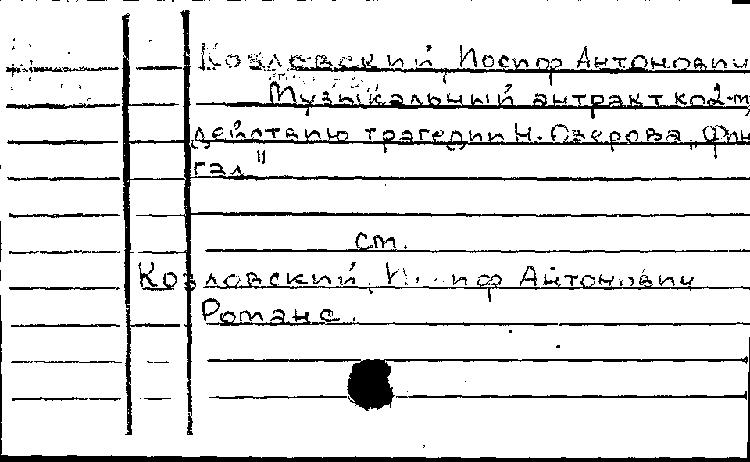 Козловский, Иосиф Антонович
Музыкальный антракт ко 2-му
действию трагедии Н. Озерова „Фин-
гал"
ст.
Козловский, Иосиф Антонович
Романс.